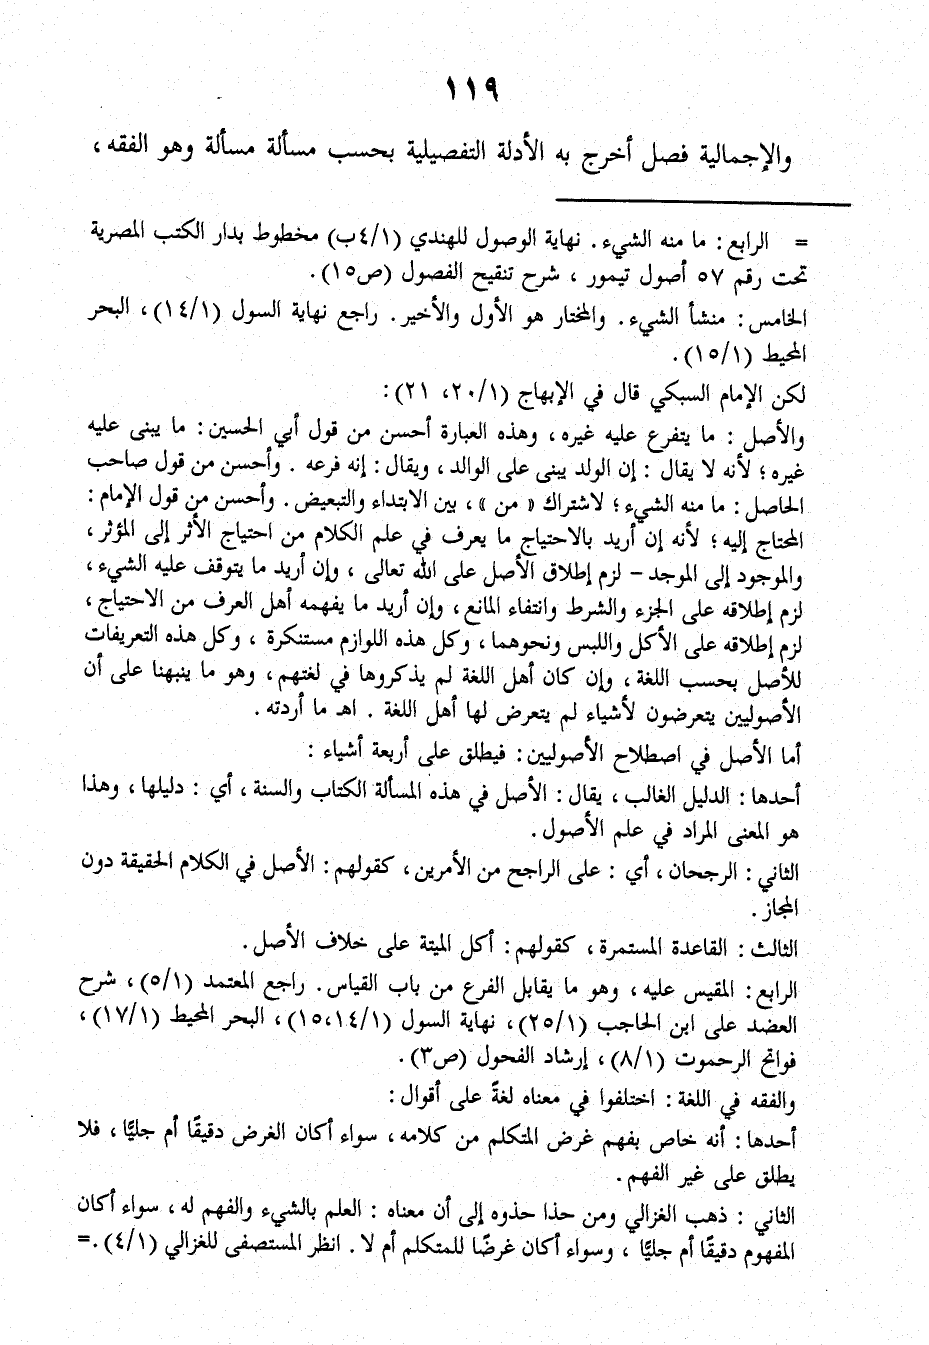 ١١٩
والإجمالية فصل أخرج به الأدلة التفصيلية بحسب مسألة مسألة وهو الفقه ،
= الرابع : ما منه الشيء . نهاية الوصول للهندي (٤/١ب) مخطوط بدار الكتب المصرية
تحت رقم ٥٧ أصول تيمور ، شرح تنقيح الفصول (ص١٥).
الخامس : منشأ الشيء . والمختار هو الأول والأخير . راجع نهاية السول (١٤/١)، البحر
المحيط (١٥/١).
لكن الإمام السبكي قال في الإبهاج (٢٠/١، ٢١):
والأصل : ما يتفرع عليه غيره ، وهذه العبارة أحسن من قول أبي الحسين : ما يبنى عليه
غيره ؛ لأنه لا يقال : إن الولد يبنى على الوالد ، ويقال : إنه فرعه . وأحسن من قول صاحب
الحاصل : ما منه الشيء ؛ لاشتراك « من » ، بين الابتداء والتبعيض . وأحسن من قول الإمام :
المحتاج إليه ؛ لأنه إن أريد بالاحتياج ما يعرف في علم الكلام من احتياج الأثر إلى المؤثر ،
والموجود إلى الموجد – لزم إطلاق الأصل على الله تعالى ، وإن أريد ما يتوقف عليه الشيء ،
لزم إطلاقه على الجزء والشرط وانتفاء المانع ، وإن أريد ما يفهمه أهل العرف من الاحتياج ،
لزم إطلاقه على الأكل واللبس ونحوهما ، وكل هذه اللوازم مستنكرة ، وكل هذه التعريفات
للأصل بحسب اللغة ، وإن كان أهل اللغة لم يذكروها في لغتهم ، وهو ما ينبهنا على أن
الأصوليين يتعرضون لأشياء لم يتعرض لها أهل اللغة . اهـ ما أردته .
أما الأصل في اصطلاح الأصوليين : فيطلق على أربعة أشياء :
أحدها : الدليل الغالب ، يقال : الأصل في هذه المسألة الكتاب والسنة ، أي : دليلها ، وهذا
هو المعنى المراد في علم الأصول .
الثاني : الرجحان ، أي : على الراجح من الأمرين ، كقولهم : الأصل في الكلام الحقيقة دون
المجاز .
الثالث : القاعدة المستمرة ، كقولهم : أكل الميتة على خلاف الأصل .
الرابع : المقيس عليه ، وهو ما يقابل الفرع من باب القياس . راجع المعتمد (٥/١)، شرح
العضد على ابن الحاجب (٢٥/١)، نهاية السول (١٥،١٤/١)، البحر المحيط (١٧/١)،
فواتح الرحموت (٨/١)، إرشاد الفحول (ص٣).
والفقه في اللغة : اختلفوا في معناه لغةً على أقوال :
أحدها : أنه خاص بفهم غرض المتكلم من كلامه ، سواء أكان الغرض دقيقًا أم جليًّا ، فلا
يطلق على غير الفهم .
الثاني : ذهب الغزالي ومن حذا حذوه إلى أن معناه : العلم بالشيء والفهم له ، سواء أكان
المفهوم دقيقًا أم جليًّا ، وسواء أكان غرضًا للمتكلم أم لا . انظر المستصفى للغزالي (٤/١).=